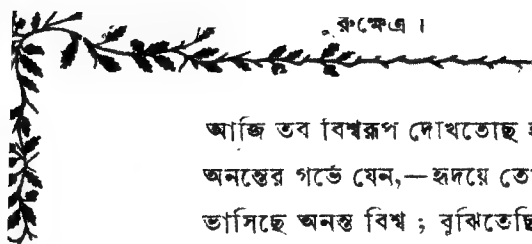 রুক্ষেত্র ।
আজি তব বিশ্বরূপ দেখিতেছি
অনন্তের গর্ভে যেন,—হৃদয়ে
ভাসিছে অনন্ত বিশ্ব ; বুঝিতেছি